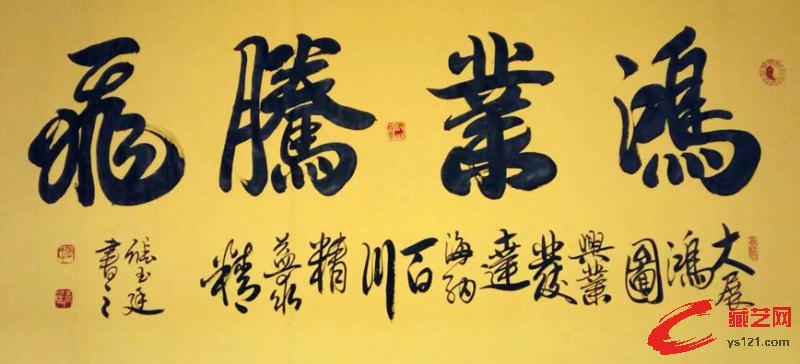 鴻業騰飛
大展鴻圖興業發達海納百川精益求精
張玉廷書之
藏艺网
ys121.com